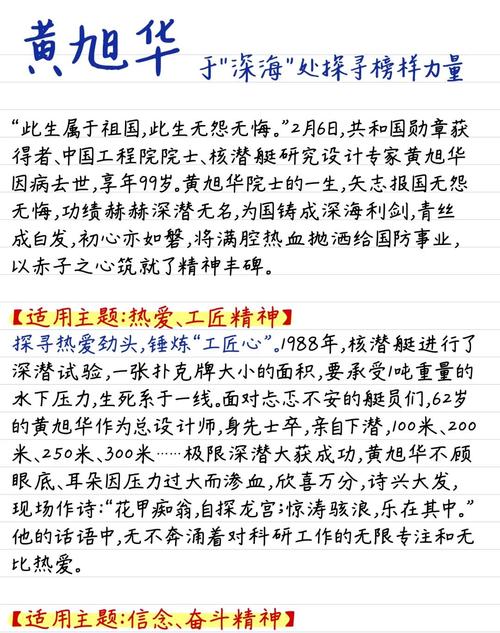 黄旭华 于"深海"处探寻榜样力量
“此生属于祖国,此生无怨无悔。”2月6日,共和国勋章获
得者、中国工程院院士、核潜艇研究设计专家黄旭华
因病去世,享年99岁。黄旭华院士的一生,矢志报国无怨
无悔,功绩赫赫深潜无名,为国铸成深海利剑,青丝
成白发,初心亦如磐,将满腔热血抛洒给国防事业,
以赤子之心筑就了精神丰碑。
【适用主题:热爱、工匠精神】
探寻热爱劲头,锤炼“工匠心”。1988年,核潜艇进行了
深潜试验,一张扑克牌大小的面积,要承受1吨重量的
水下压力,生死系于一线。面对忐忑不安的艇员们,62岁
的黄旭华作为总设计师,身先士卒,亲自下潜,100米、200
米、250米、300米……极限深潜大获成功,黄旭华不顾
眼底、耳朵因压力过大而渗血,欣喜万分,诗兴大发,
现场作诗:“花甲痴翁,自探龙宫;惊涛骇浪,乐在其中。”
他的话语中,无不奔涌着对科研工作的无限专注和无
比热爱。
【适用主题:信念、奋斗精神】